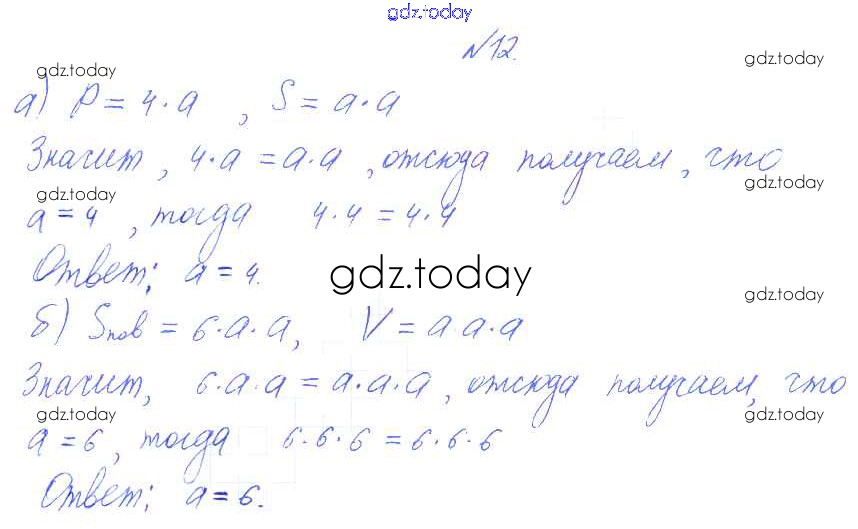 gdz.today
№12.
gdz.today
gdz.today
а) P = 4·a , S = a·a
Значит, 4·a = a·a , отсюда получаем, что
gdz.today
gdz.today
a = 4 , тогда 4·4 = 4·4
Ответ: a = 4.
gdz.today
gdz.today
б) Sпов = 6·a·a, V = a·a·a
Значит, 6·a·a = a·a·a , отсюда получаем, что
gdz.today
gdz.today
a = 6, тогда 6·6·6 = 6·6·6
Ответ: a = 6.